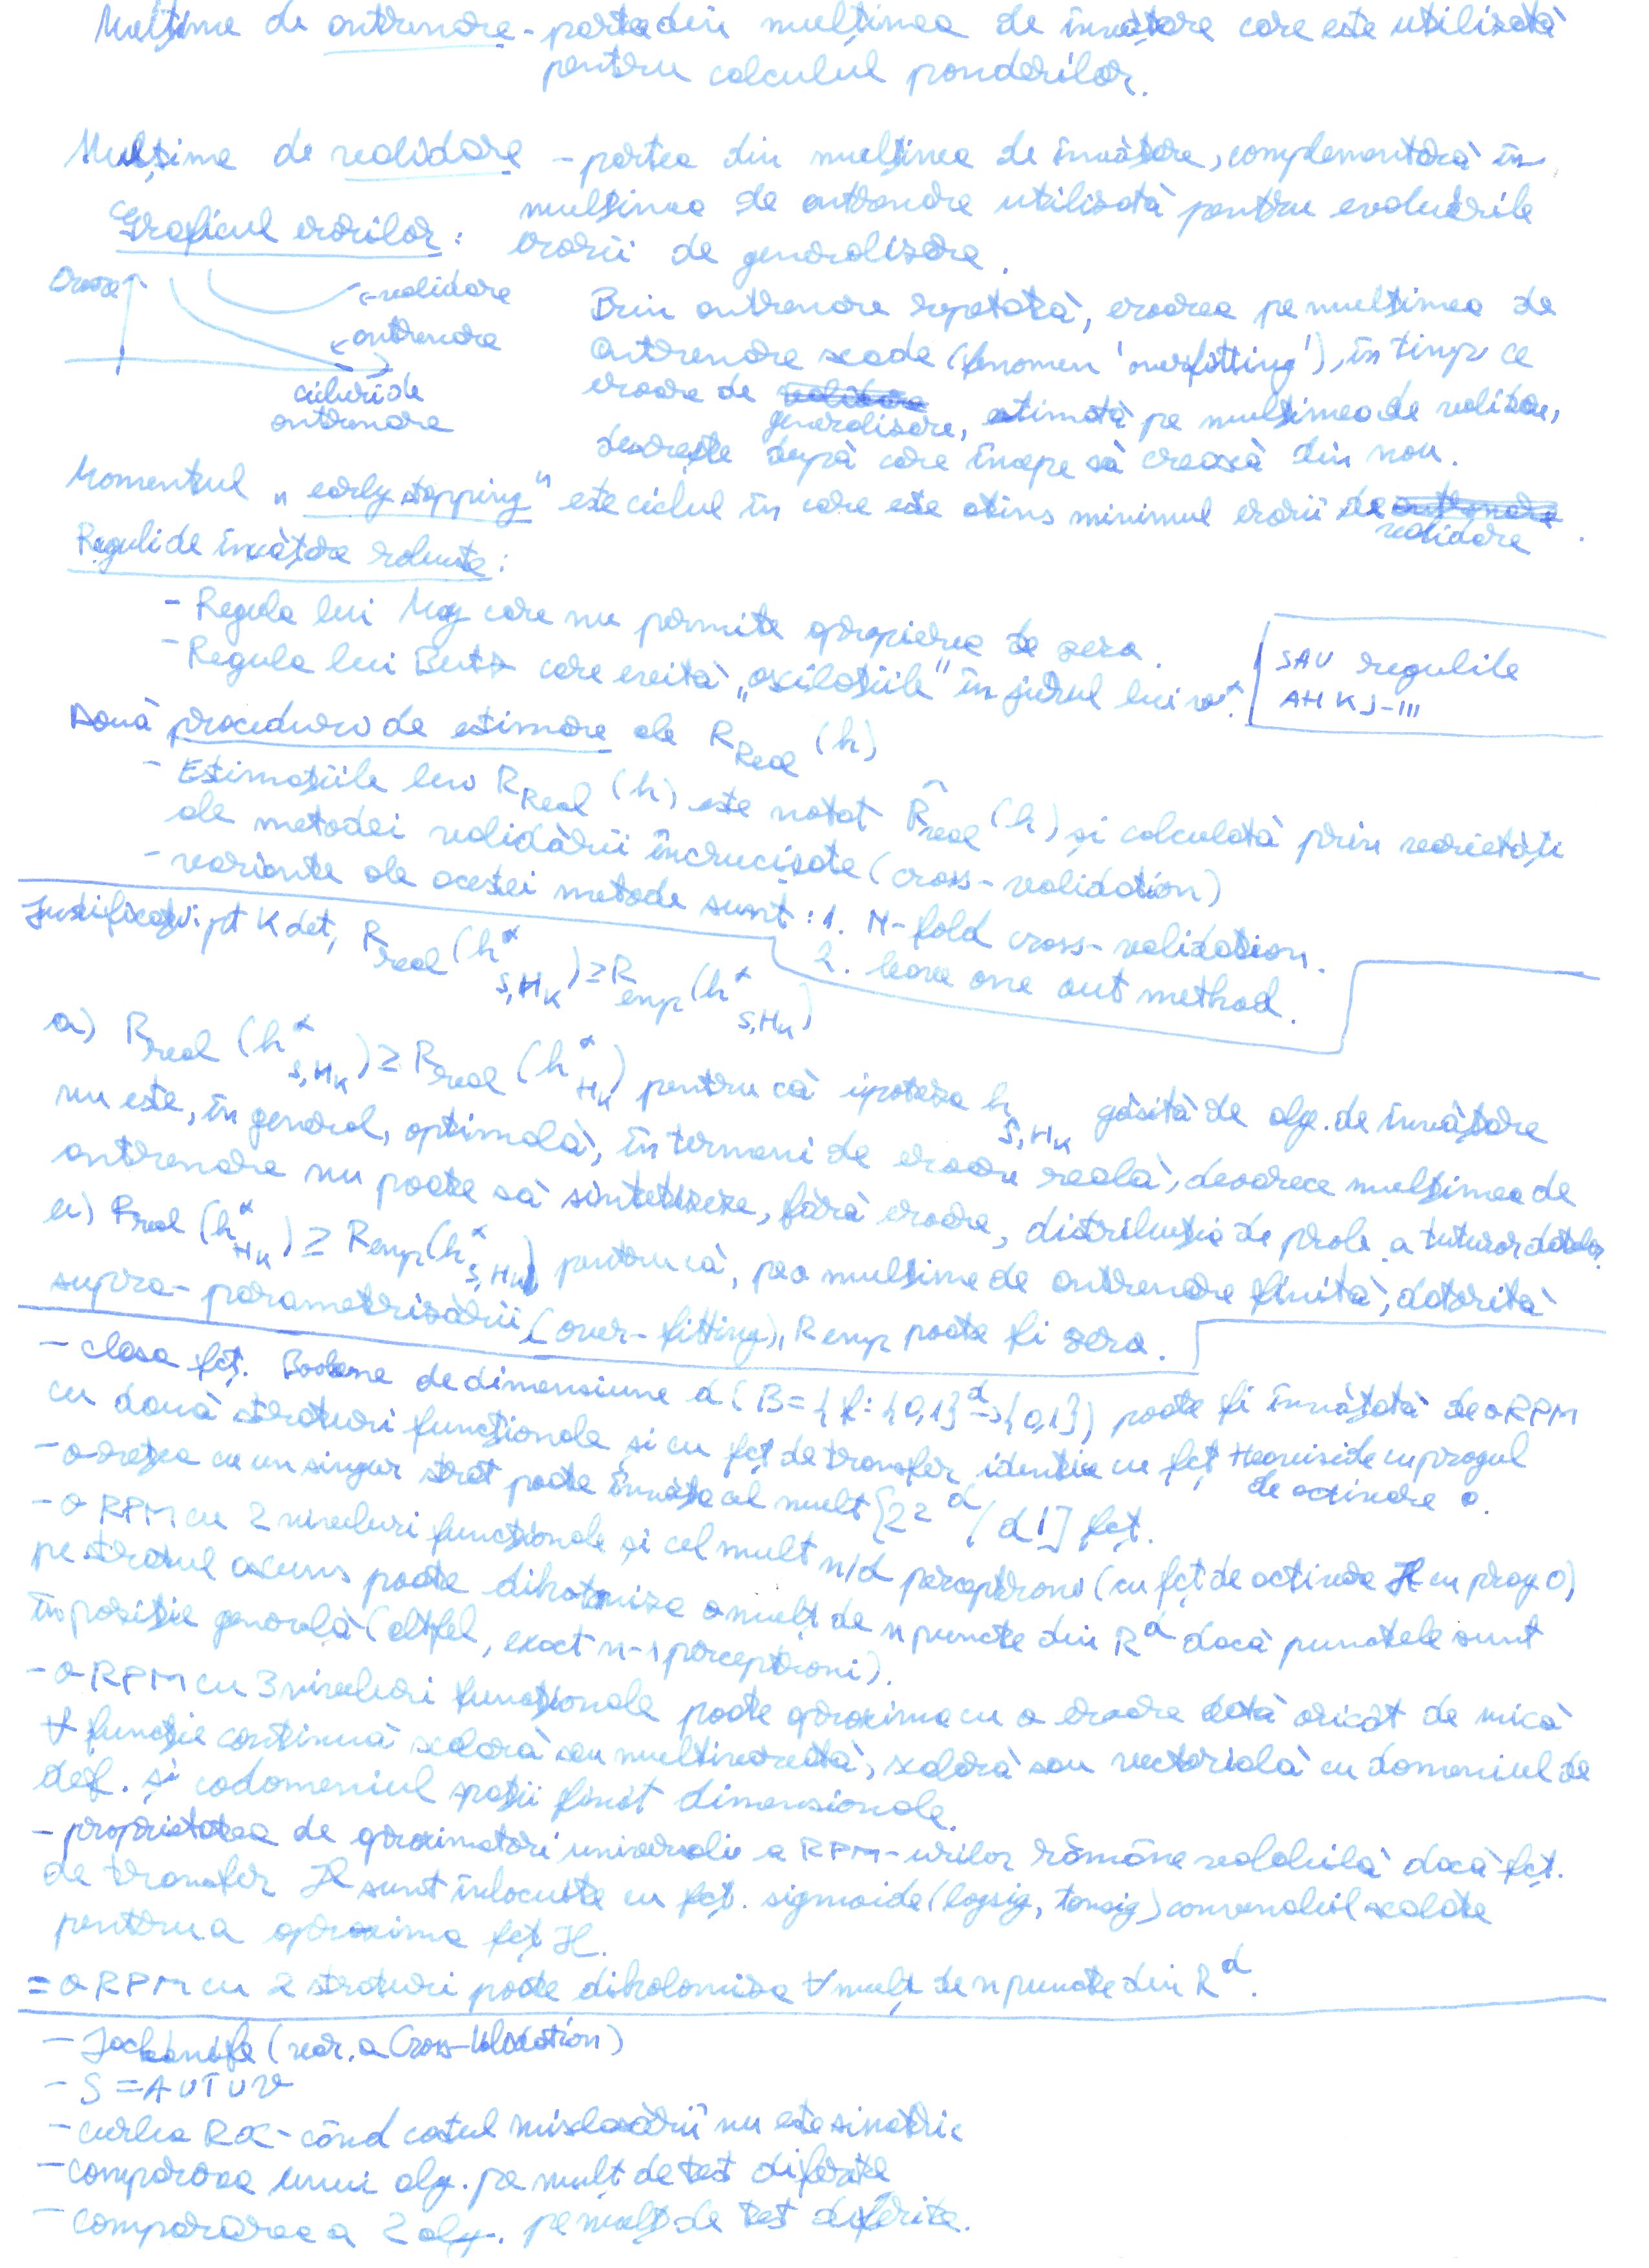 Mulțime de antrenare - partea din mulțimea de învățare care este utilizată
pentru calculul ponderilor.
Mulțime de validare - partea din mulțimea de învățare, complementară în
mulțimea de antrenare utilizată pentru evaluările
erorii de generalizare.
Graficul erorilor:
Eroare
validare
antrenare
cicluri de
antrenare
Prin antrenare repetată, eroarea pe mulțimea de
antrenare scade (fenomen 'overfitting'), în timp ce
eroare de generalisare, estimată pe mulțimea de validare,
descrește după care începe să crească din nou.
Momentul "early stopping" este ciclul în care este atins minimul erorii de validare.
Reguli de învățare robuste:
- Regula lui May care nu permite apropierea de zero.
- Regula lui Butz care evită "oscilațiile" în jurul lui w*.
SAU regulile
AHK I-III
Două proceduri de estimare ale R_Real (h)
- Estimațiile lui R_Real (h) este notat R̂_real (h) și calculată prin varietăți
ale metodei validării încrucișate (cross-validation)
- variante ale acestei metode sunt: 1. N-fold cross-validation.
2. leave one out method.
Justificați: pt K det, R_real (h*_S,H_K) ≥ R_emp (h*_S,H_K)
a) R_real (h*_S,H_K) ≥ R_real (h*_H_K) pentru că ipoteza h_S,H_K găsită de alg. de învățare
nu este, în general, optimală, în termeni de eroare reală, deoarece mulțimea de
antrenare nu poate să sintetizeze, fără eroare, distribuția de prob. a tuturor datelor.
b) R_real (h*_H_K) ≥ R_emp (h*_S,H_K) pentru că, pe o mulțime de antrenare finită, datorită
supra-parametrizării (over-fitting), R emp poate fi zero.
- clasa fcț. Booleene de dimensiune d (B = {f: {0,1}^d → {0,1}}) poate fi învățată de o RPM
cu două straturi funcționale și cu fcț de transfer identice cu fcț Heaviside cu pragul
de activare 0.
- o rețea cu un singur strat poate învăța cel mult [2^2^d / d!] fcț.
- o RPM cu 2 niveluri funcționale și cel mult n/d perceptroni (cu fcț de activare H cu prag 0)
pe stratul ascuns poate dihotomiza o mulț de n puncte din R^d dacă punctele sunt
în poziție generală (altfel, exact n-1 perceptroni).
- o RPM cu 3 niveluri funcționale poate aproxima cu o eroare dată oricât de mică
∀ funcție continuă scalară sau multivariată, scalară sau vectorială cu domeniul de
def. și codomeniul spații finit dimensionale.
- proprietatea de aproximatori universali a RPM-urilor rămâne valabilă dacă fcț.
de transfer H sunt înlocuite cu fcț. sigmoide (logsig, tansig) convenabil scalate
pentru a aproxima fcț H.
= o RPM cu 2 straturi poate dihotomiza ∀ mulț de n puncte din R^d.
- Jackknife (var. a Cross-Validation)
- S = A ∪ T ∪ V
- curba ROC - când costul misclasării nu este simetric
- compararea unui alg. pe mulț de test diferite
- compararea a 2 alg. pe mulț de test diferite.